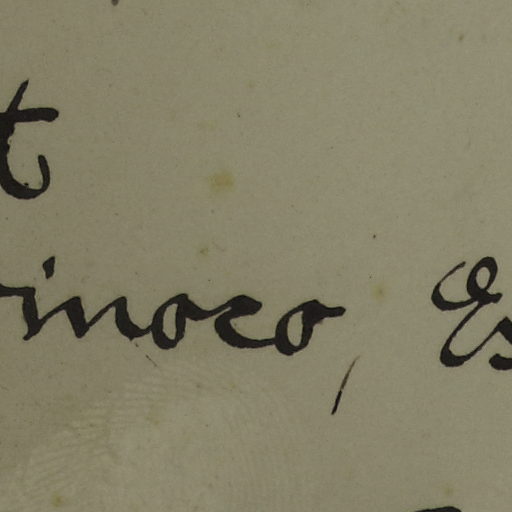 t
rinoco, Es